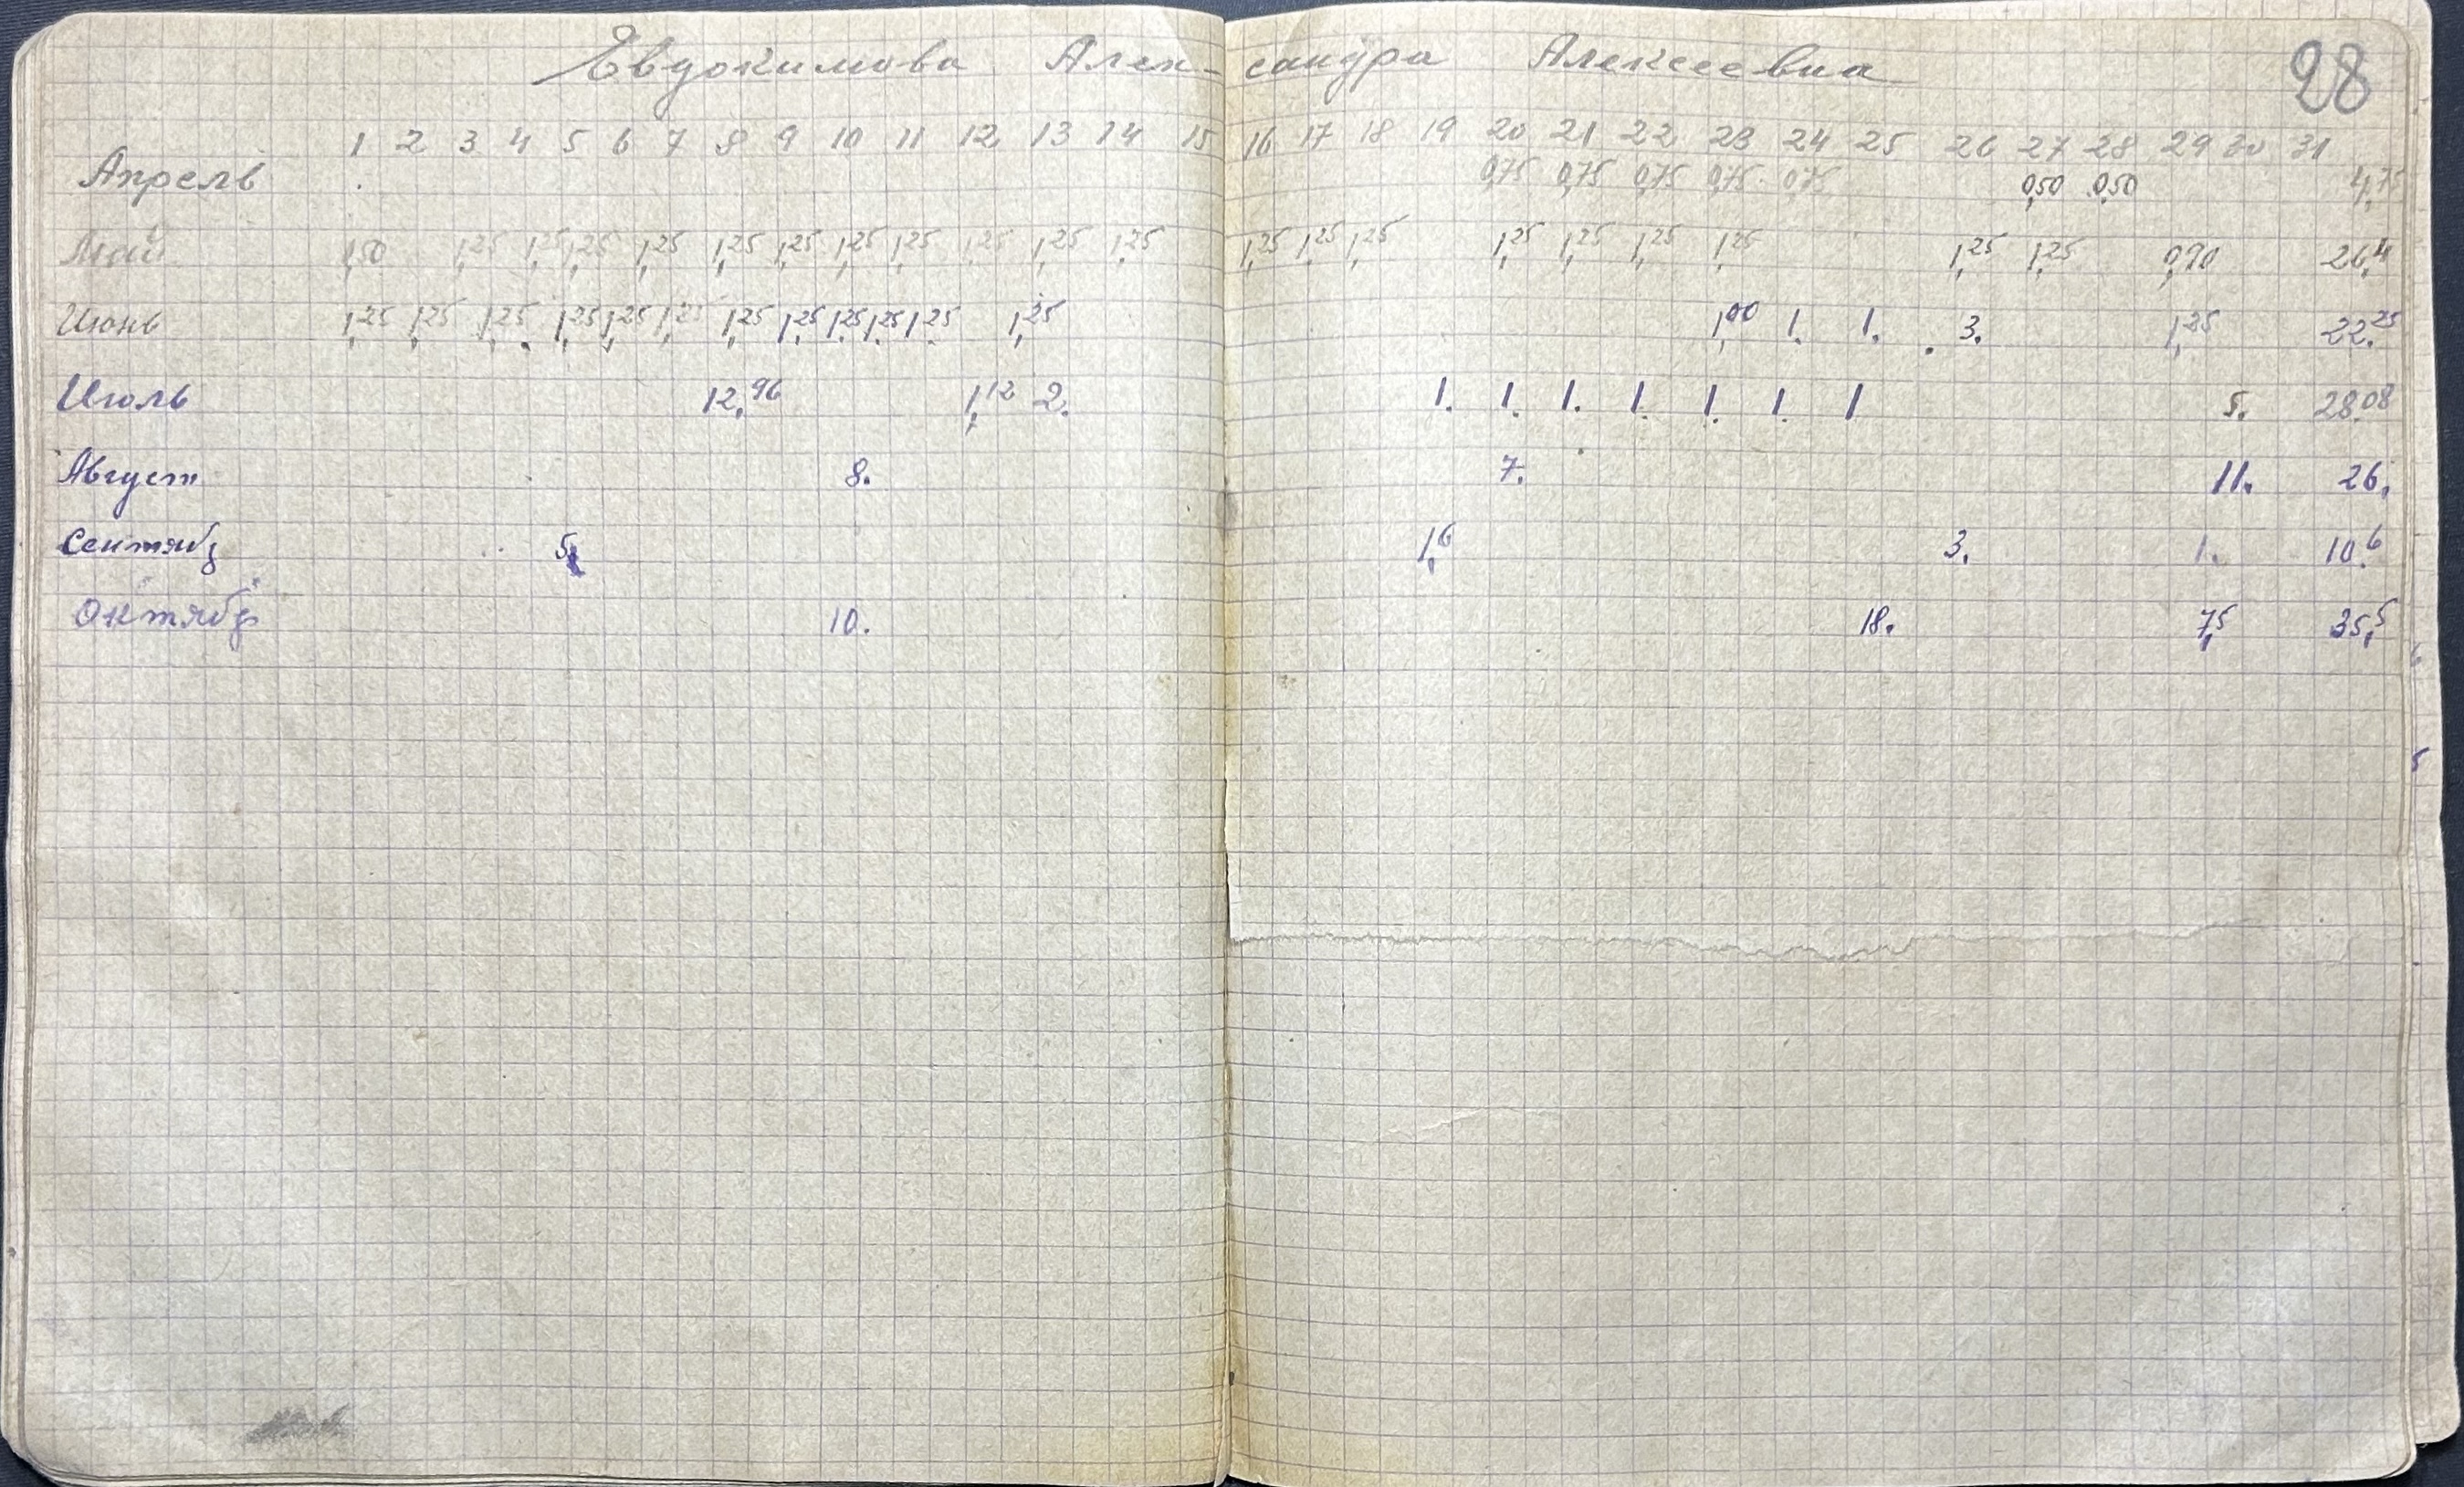 Евдокимова Александра Алексеевна 28
1 2 3 4 5 6 7 8 9 10 11 12 13 14 15 16 17 18 19 20 21 22 23 24 25 26 27 28 29 30 31
Апрель 0,75 0,75 0,75 0,75 0,75 0,50 0,50 4,75
Май 1,50 1,25 1,25 1,25 1,25 1,25 1,25 1,25 1,25 1,25 1,25 1,25 1,25 1,25 1,25 1,25 1,25 1,25 1,25 1,25 1,25 0,90 26,4
Июнь 1,25 1,25 1,25 1,25 1,25 1,25 1,25 1,25 1,25 1,25 1,25 1,25 1,00 1. 1. 3. 1,25 22.25
Июль 12,96 1,12 2. 1. 1. 1. 1. 1. 1. 1 5. 28.08
Август 8. 7. 11. 26.
Сентябр 5, 1,6 3. 1. 10.6
Октябр 10. 18. 7,5 35,5